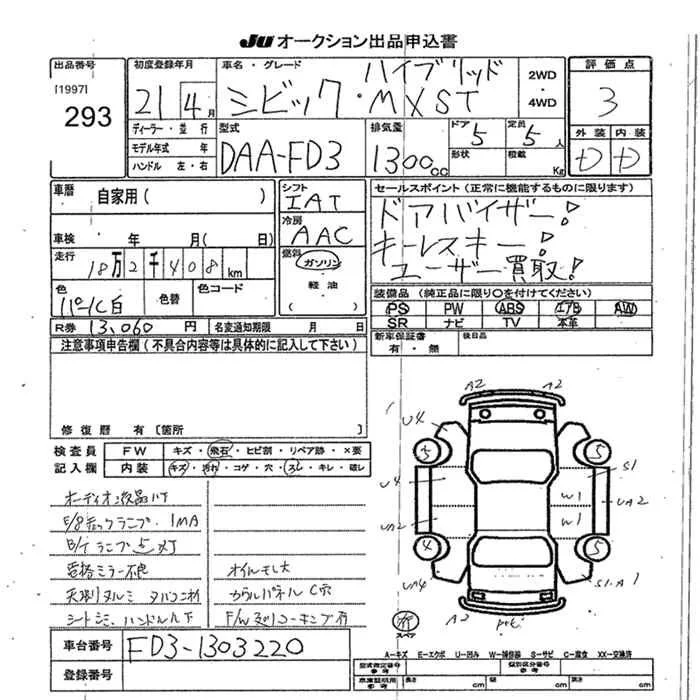 JU オークション出品申込書
出品番号
[1997]
293
初度登録年月
21 4月
ディーラー・並行
モデル年式 年
ハンドル 左・右
車名・グレード
ハイブリッド
シビック・MXST
2WD
・
4WD
型式
DAA-FD3
排気量
1300cc
ドア 5
形状
定員 5人
積載
Kg
評価点
3
外装 内装
D D
車歴 自家用( )
車検 年 月( 日)
走行 18万2千408km
色
色替
色コード
シフト
IAT
冷房
AAC
燃料
ガソリン
・
軽油
( )
セールスポイント(正常に機能するものに限ります)
ドアバイザー!
キーレスキー!
ユーザー買取!
装備品(純正品に限り○を付けてください)
PS PW ABS エアB AW
SR ナビ TV 本革
R券 13,060円
名変通知期限 月 日
新車保証書
有・無
後日品
注意事項申告欄(不具合内容等は具体的に記入して下さい)
修復歴 有〔箇所
検査員
記入欄
FW キズ・飛石・ヒビ割・リペア跡・×要
内装 キズ・汚れ・コゲ・穴・スレ・キレ・破レ
オーディオ液晶バケ
ランプ・1MA
B/Tランプ 5灯
ミラー不良
オイルモレ大
天張タルミ タバコ
パネルC穴
ハンドルスレ
A2 A2
U4
5 5
U4
S1
W1
UA2
UA2
W1
4 5
UA4
S1・A1
A2
スペア
A－キズ E－エクボ U－凹み W－補修跡 S－サビ C－腐食 XX－交換済
車台番号 FD3-1303220
登録番号
型式指定番号
参考
類別区分番号
参考
車庫証明用
参考
長さ cm
幅 cm
高さ cm